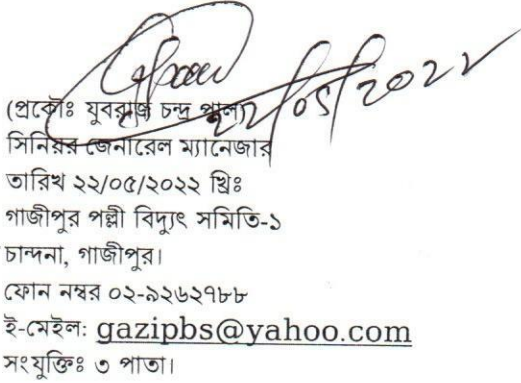 ২২/০৫/২০২২
(প্রকৌঃ যুবরাজ চন্দ্র পাল)
সিনিয়র জেনারেল ম্যানেজার
তারিখ ২২/০৫/২০২২ খ্রিঃ
গাজীপুর পল্লী বিদ্যুৎ সমিতি-১
চান্দনা, গাজীপুর।
ফোন নম্বর ০২-৯২৬২৭৮৮
ই-মেইল: gazipbs@yahoo.com
সংযুক্তিঃ ৩ পাতা।